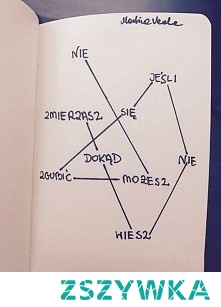 NIE
JEŚLI
SIĘ
ZMIERZASZ
DOKĄD
NIE
ZGUBIĆ
MOŻESZ
WIESZ
ZSZYWKA